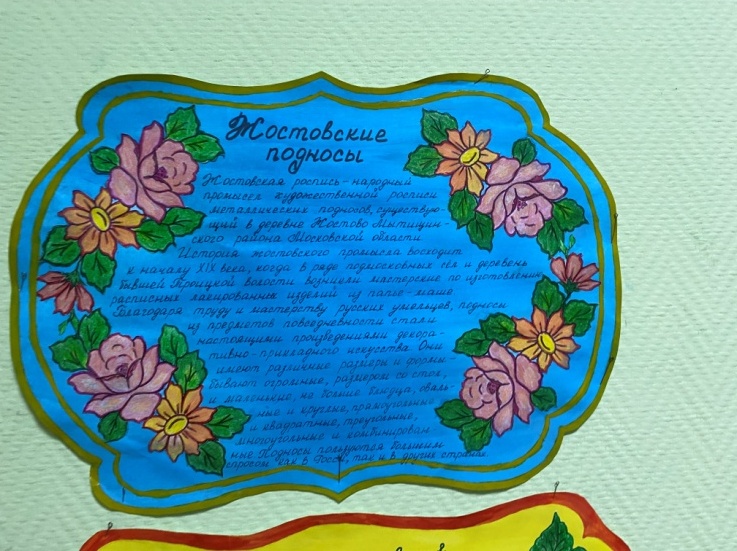 Жостовские
подносы
Жостовская роспись - народный
промысел художественной росписи
металлических подносов, существую-
щий в деревне Жостово Мытищин-
ского района Московской области.
История жостовского промысла восходит
к началу XIX века, когда в ряде подмосковных сёл и деревень
бывшей Троицкой волости возникли мастерские по изготовлению
расписных лакированных изделий из папье-маше.
Благодаря труду и мастерству русских умельцев, подносы
из предметов повседневности стали
настоящими произведениями декора-
тивно-прикладного искусства. Они
имеют различные размеры и формы:
бывают огромные, размером со стол,
и маленькие, не больше блюдца, оваль-
ные и круглые, прямоугольные
и квадратные, треугольные,
многоугольные и комбинирован
ные. Подносы пользуются большим
спросом как в России, так и в других странах.